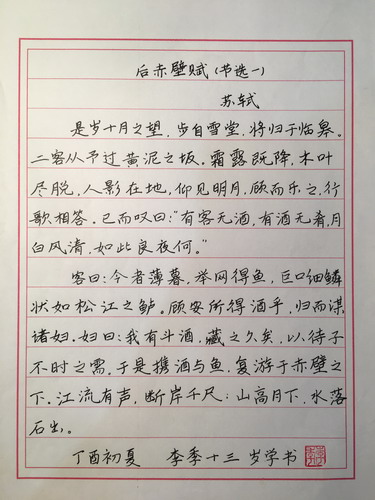 后赤壁赋（节选一）
苏轼
是岁十月之望，步自雪堂，将归于临皋。
二客从予过黄泥之坂。霜露既降，木叶
尽脱，人影在地，仰见明月，顾而乐之，行
歌相答。已而叹曰：“有客无酒，有酒无肴，月
白风清，如此良夜何。”
客曰：今者薄暮，举网得鱼，巨口细鳞
状如松江之鲈。顾安所得酒乎，归而谋
诸妇。妇曰：我有斗酒，藏之久矣，以待子
不时之需。于是携酒与鱼，复游于赤壁之
下。江流有声，断岸千尺；山高月下，水落
石出。
丁酉初夏 李季十三岁学书